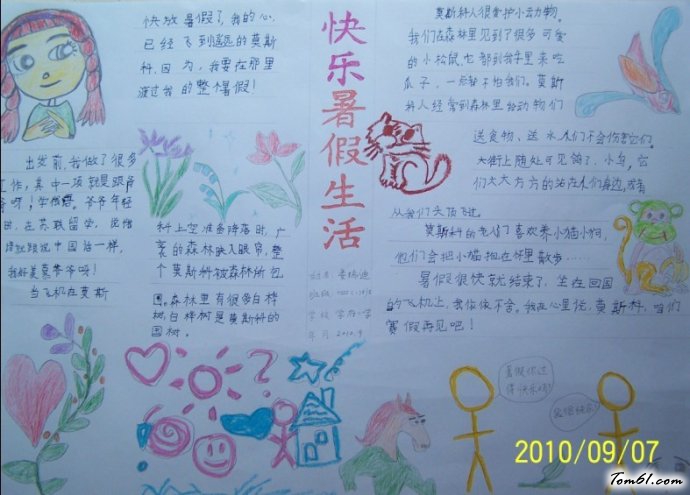 快乐暑假生活
快放暑假了,我的心
已经飞到遥远的莫斯
科,因为,我要在那里
渡过我的整个暑假!
出发前,我做了很多
工作,其中一项就是跟爷
爷学俄语,爷爷年轻
时,在苏联留学,
说中国话一样,
当飞机在莫斯
科上空准备降落时,广
袤的森林映入眼帘,整
个莫斯科被森林所包
围。森林里有很多白桦
树,白桦树是莫斯科的
国树。
莫斯科人很爱护小动物。
我们在森林里见到了很多可爱
的小松鼠,它都到我手里来吃
瓜子,一点都不怕我们。莫斯
科人经常到森林里给动物们
送食物、送水,人们不会伤害它们。
大街上随处可见鸽子、小鸟,它
们大大方方的站在人们身边,或者
从我们头顶飞过。
莫斯科的老人喜欢养小猫小狗,
他们会把小猫抱在怀里散步……
暑假很快就结束了,坐在回国
的飞机上,我依依不舍,我在心里说,莫斯科,咱们
寒假再见吧!
姓名:
班级:
学校:
年月:2010.9
暑假你过
得快乐吗?
2010/09/07
Tom61.com